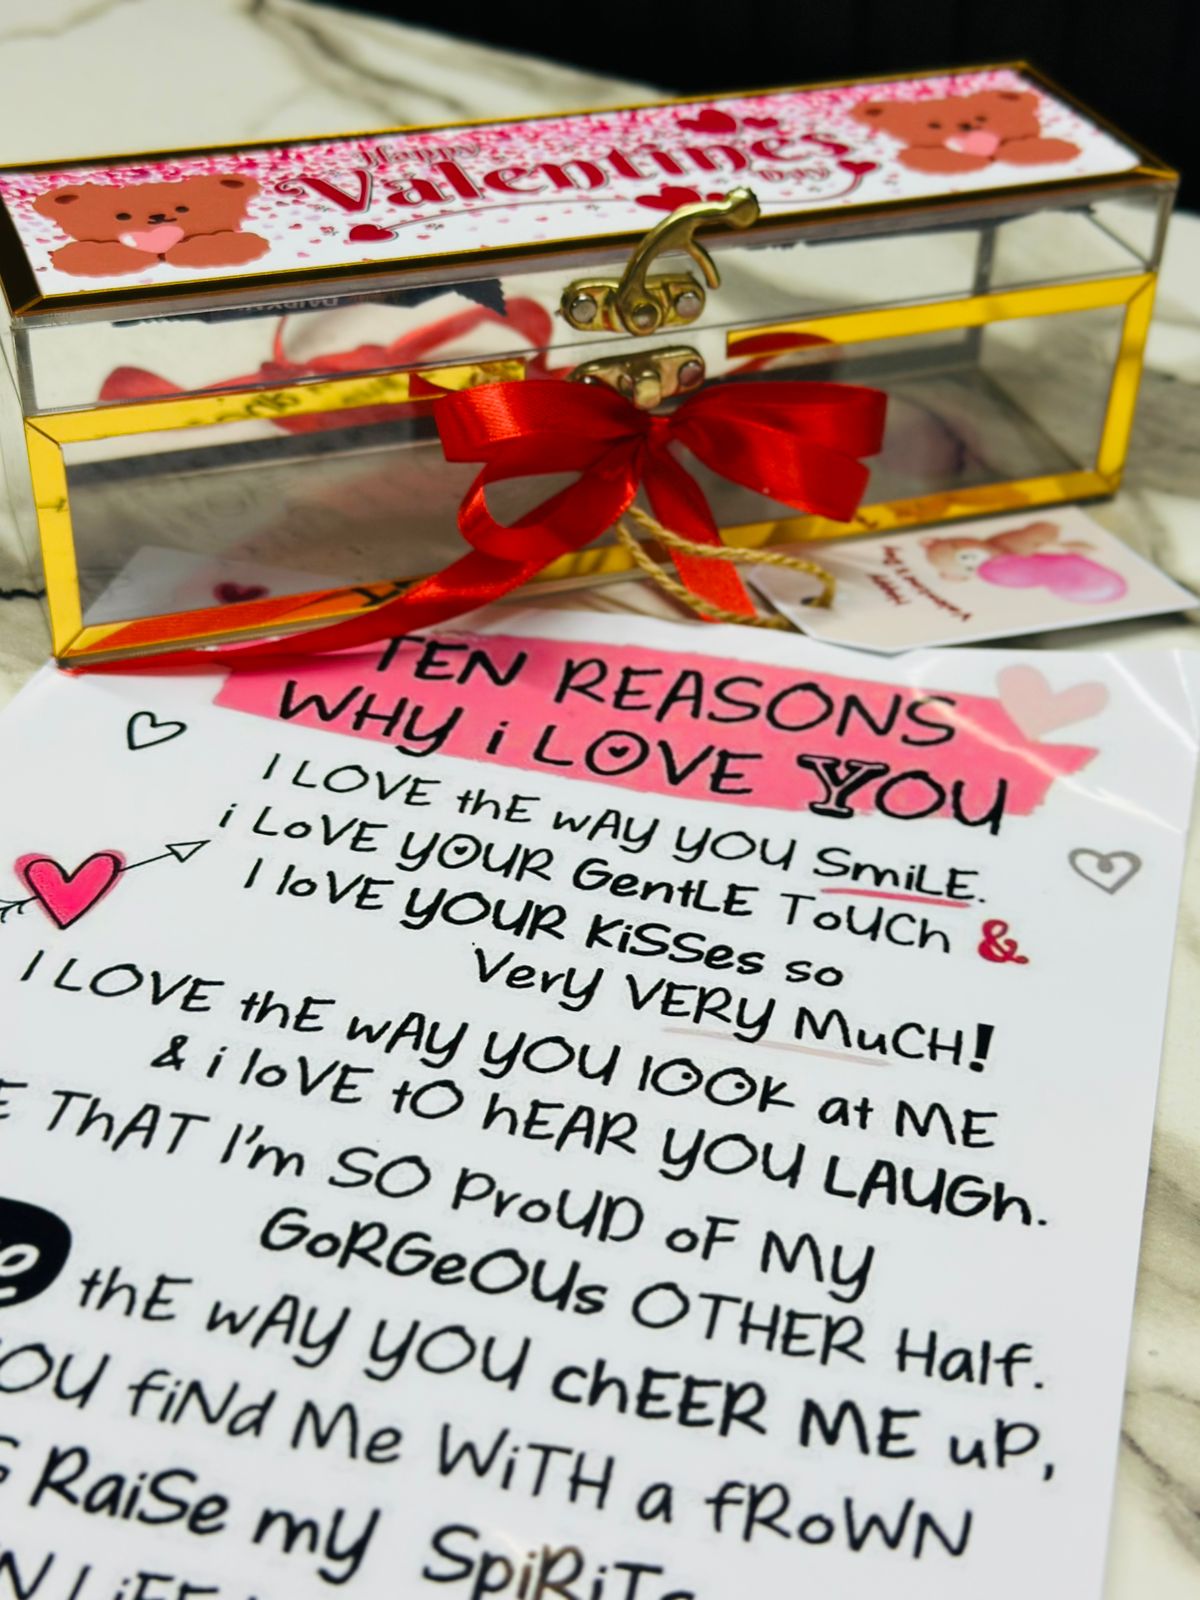 Happy
Valentines
Day
Happy
Valentine's Day
TEN REASONS
WHY i LOVE YOU
I LOVE thE wAY yOU SmiLE.
i LoVE yOUR GentLE ToUCh &
I loVE yOUR KiSSes so
Very VERy MuCH!
I LOVE thE wAY yOU lOOK at ME
& i loVE tO hEAR yOU LAUGh.
E ThAT I'm SO ProUD oF My
GoRGeOUs OTHER Half.
thE wAY yOU chEER ME uP,
OU fiNd Me WiTH a fRoWN
S RaiSe my SpiRiTs
N LiFE